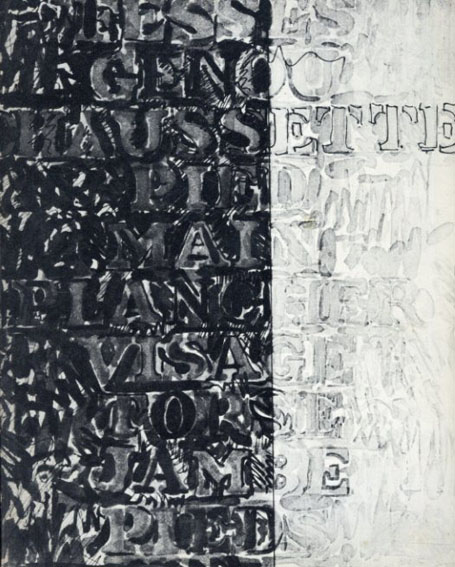 FESSES
GENOU
CHAUSSETTE
PIED
MAIN
PLANCHER
VISAGE
TORSE
JAMBE
PIEDS